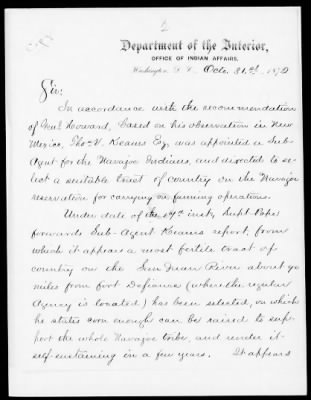 2
Department of the Interior,
OFFICE OF INDIAN AFFAIRS,
Washington, D. C., Octr. 31st, 1872
Sir:
In accordance with the recommendations
of Genl Howard, based on his observation in New
Mexico, Thos V. Keams Esq, was appointed a Sub-
Agent for the Navajoe Indians, and directed to se-
lect a suitable tract of country on the Navajoe
reservation for carrying on farming operations.
Under date of the 19th inst, Supt. Pope
forwards Sub-Agent Keams report, from
which it appears a most fertile tract of
country on the San Juan River about 90
miles from Fort Defiance (where the regular
Agency is located) has been selected, on which
he states corn enough can be raised to sup-
port the whole Navajoe tribe, and render it-
self-sustaining in a few years. It appears